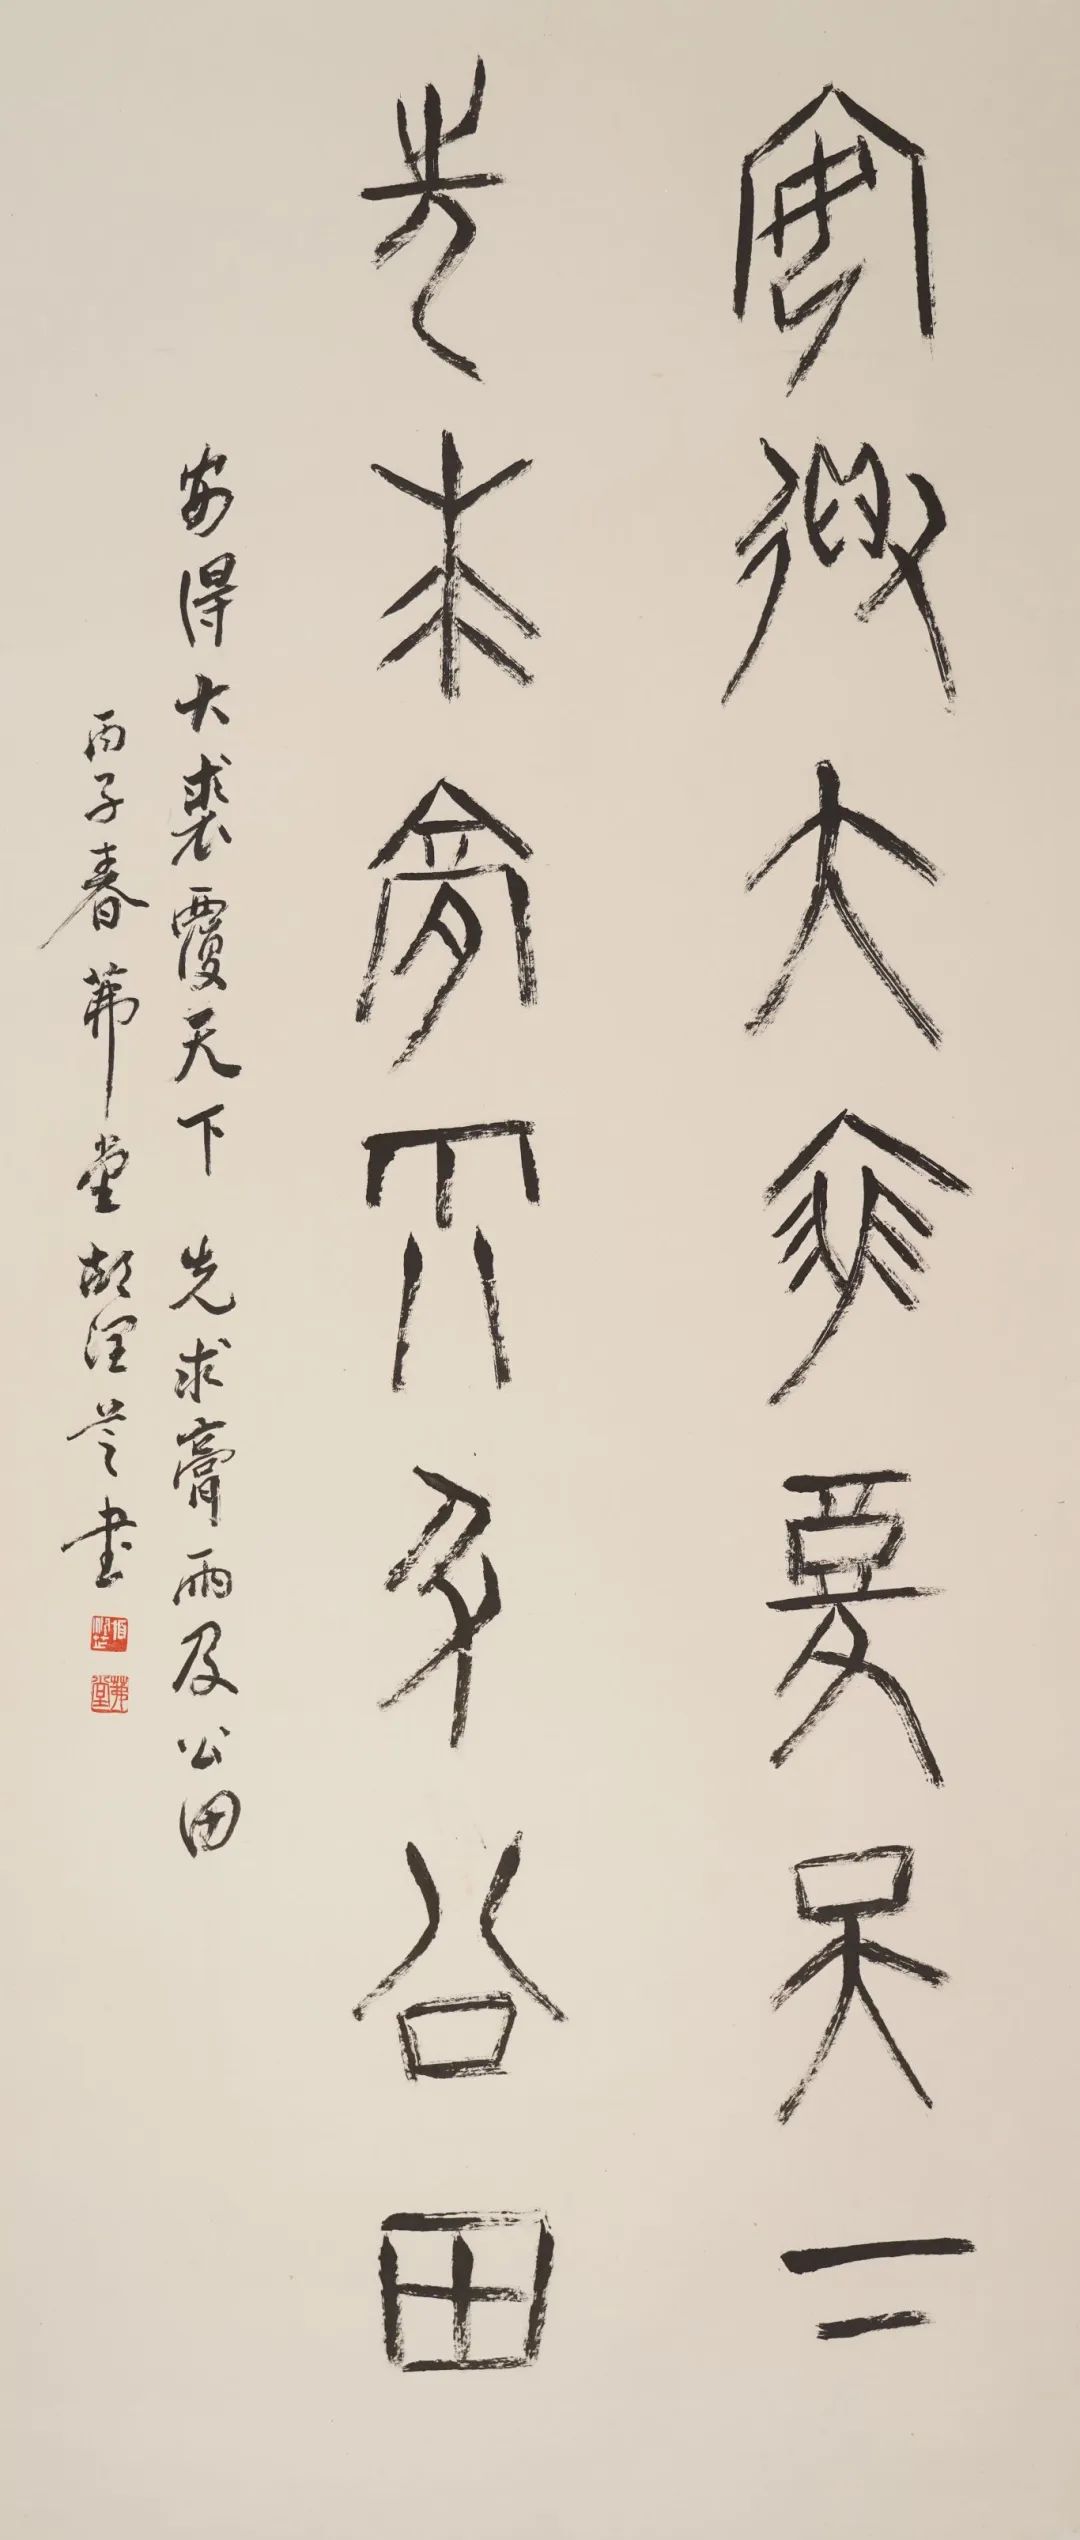 安得大裘覆天下
先求膏雨及公田
安得大裘覆天下 先求膏雨及公田
丙子春茀堂胡润芝书
茀堂